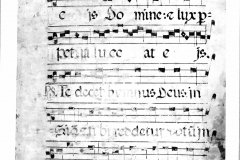 e is Do mine: e lux p
pet. ia lu ce at e is.
Te decet hymnus Deus in
et ti bi reddetur votum in